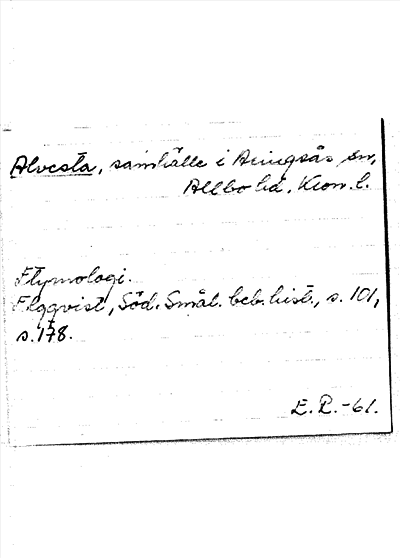 Alvesta, samhälle i Aringsås sn,
Allbo hd, Kron. l.
Etymologi.
Elgqvist, Söd. Smål. beb. hist., s. 101,
s. 178.
E. R. -61.